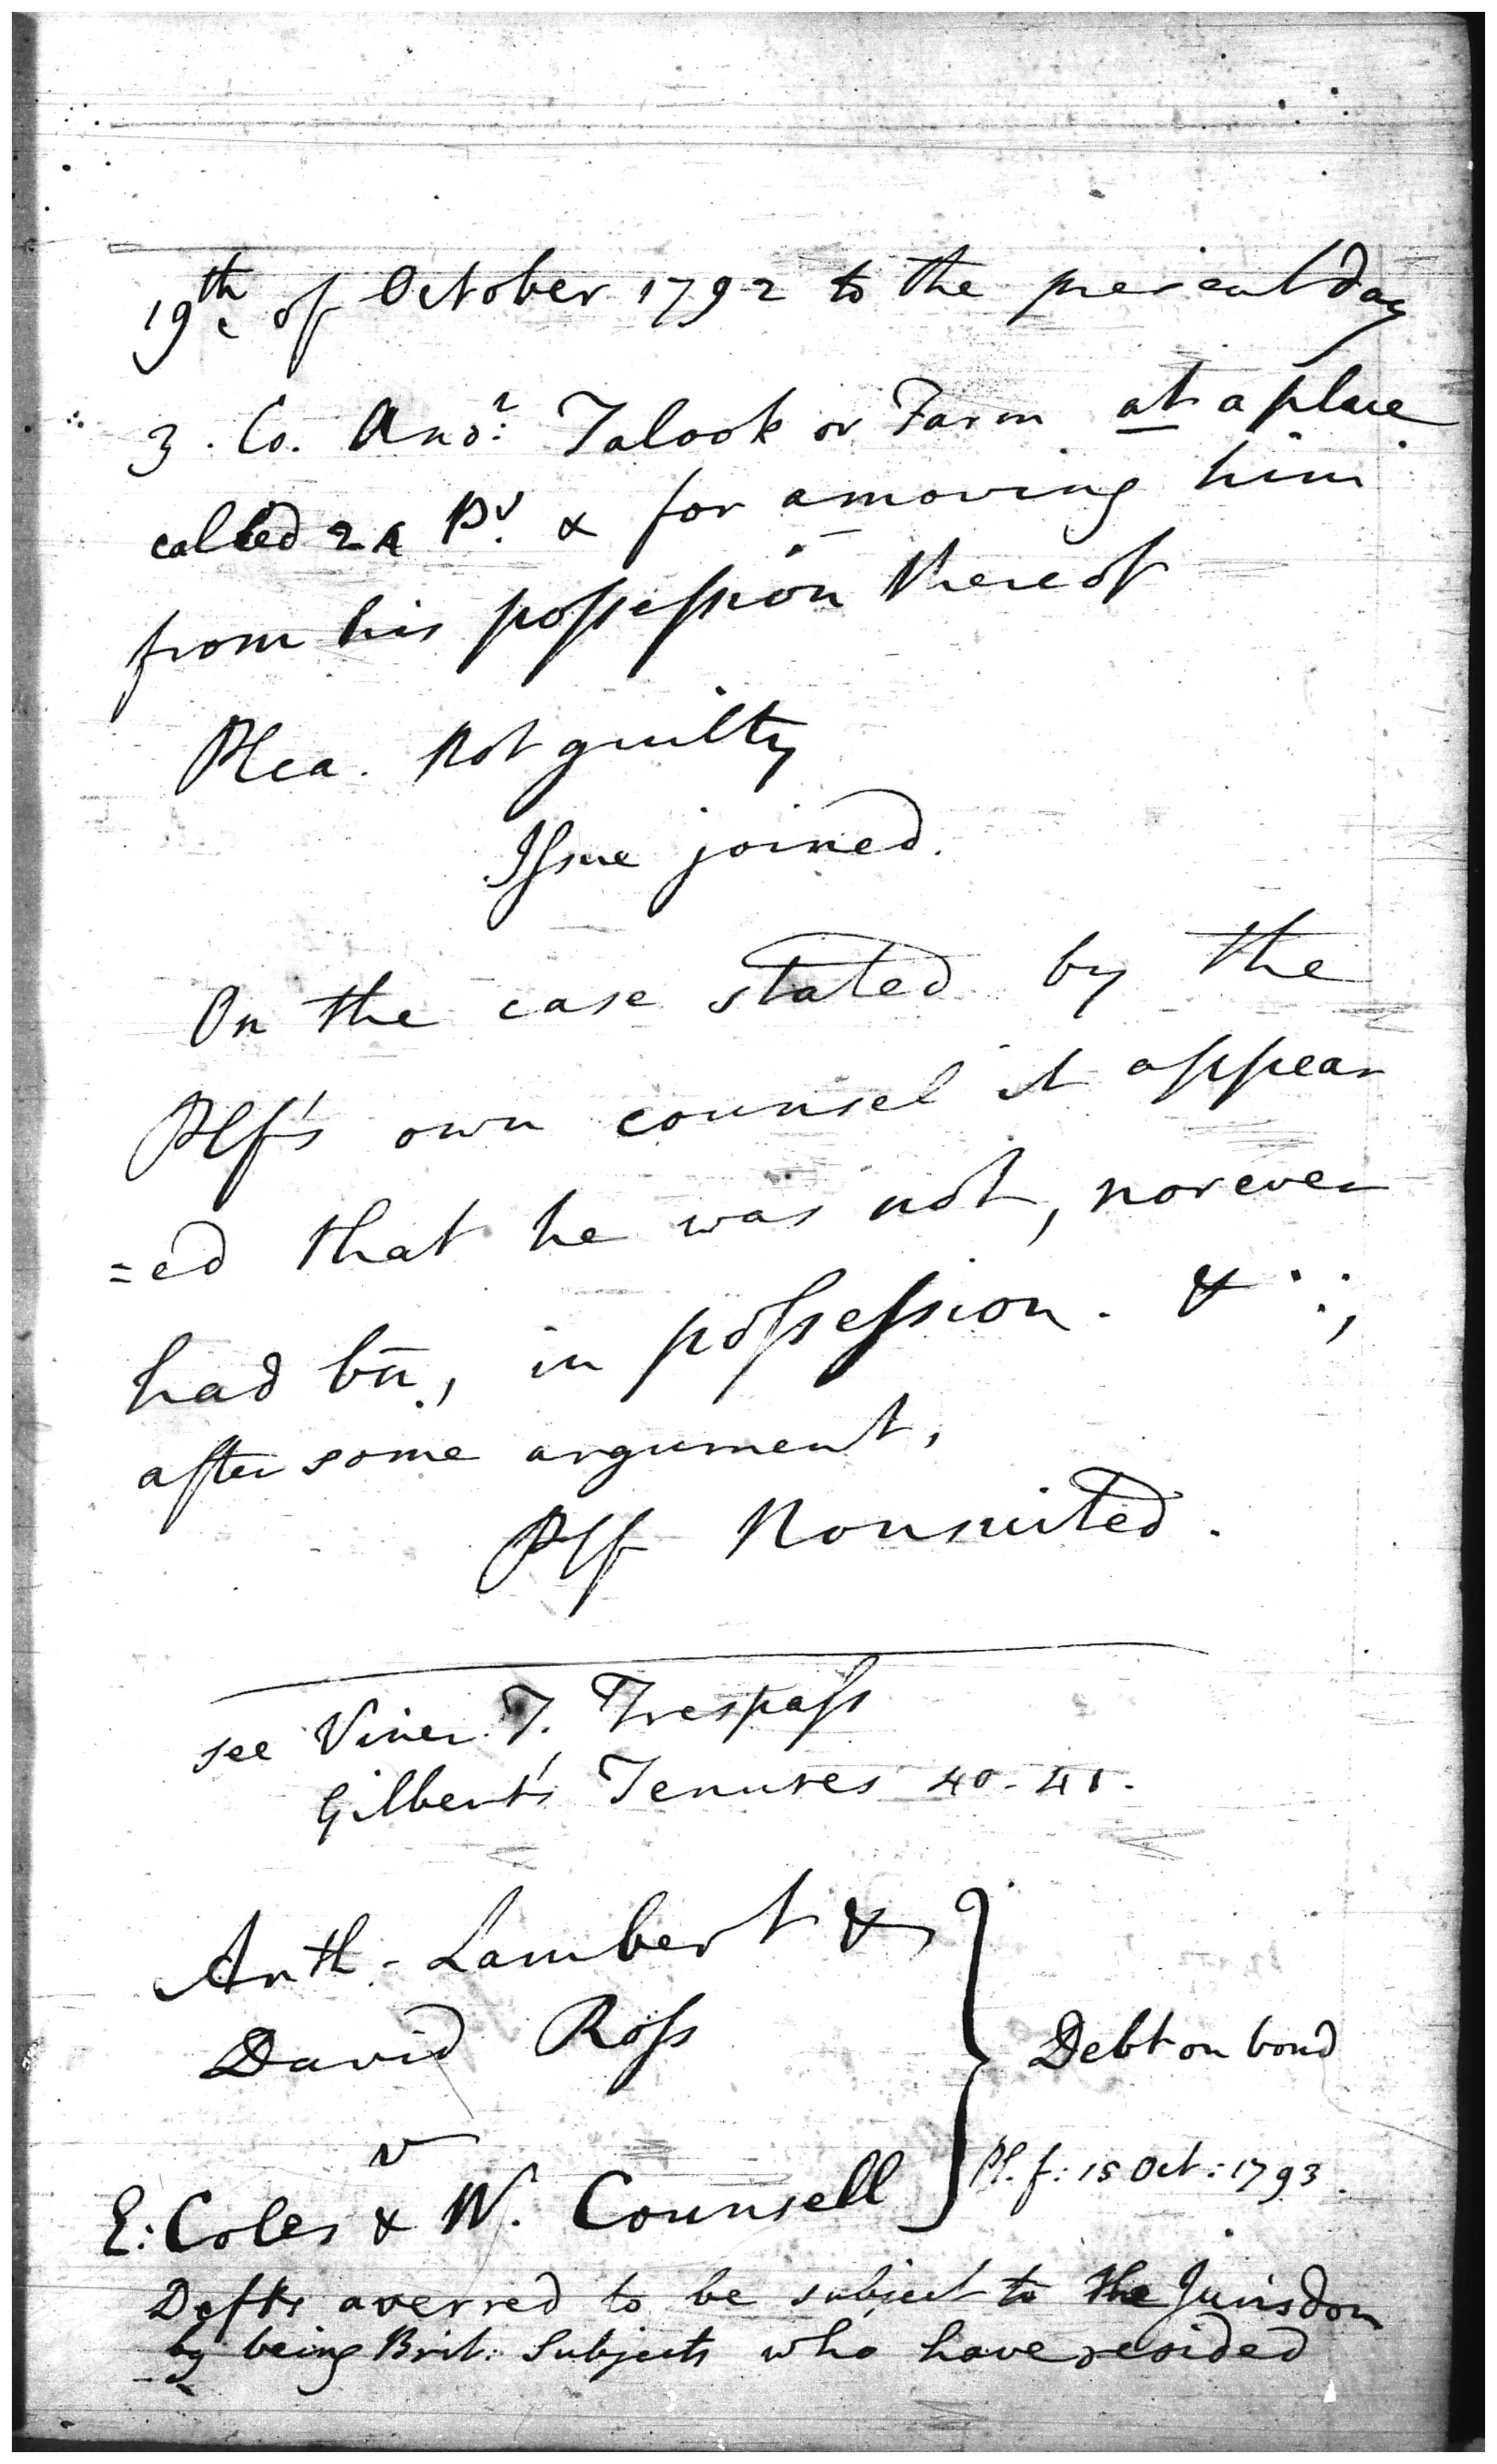 19th of October 1792 to the present day
3. Co. Anor. Talook or Farm at a place
called 2A & for amoving him
from his possession thereof
Plea. Not guilty
Issue joined.
On the case stated by the
Plf's own counsel it appear
=ed that he was not, nor ever
had bn., in possession. & ∴,
after some argument,
Plf Nonsuited.
see Viner. T. Trespass
Gilbert's Tenures 40-41.
Anth. Lambert &
David Ross
v
E: Coles & W. Counsell
Debt on bond
Pl. f: 15 Oct: 1793.
Defts averred to be subject to the Jurisdon
by being Brit: Subjects who have resided